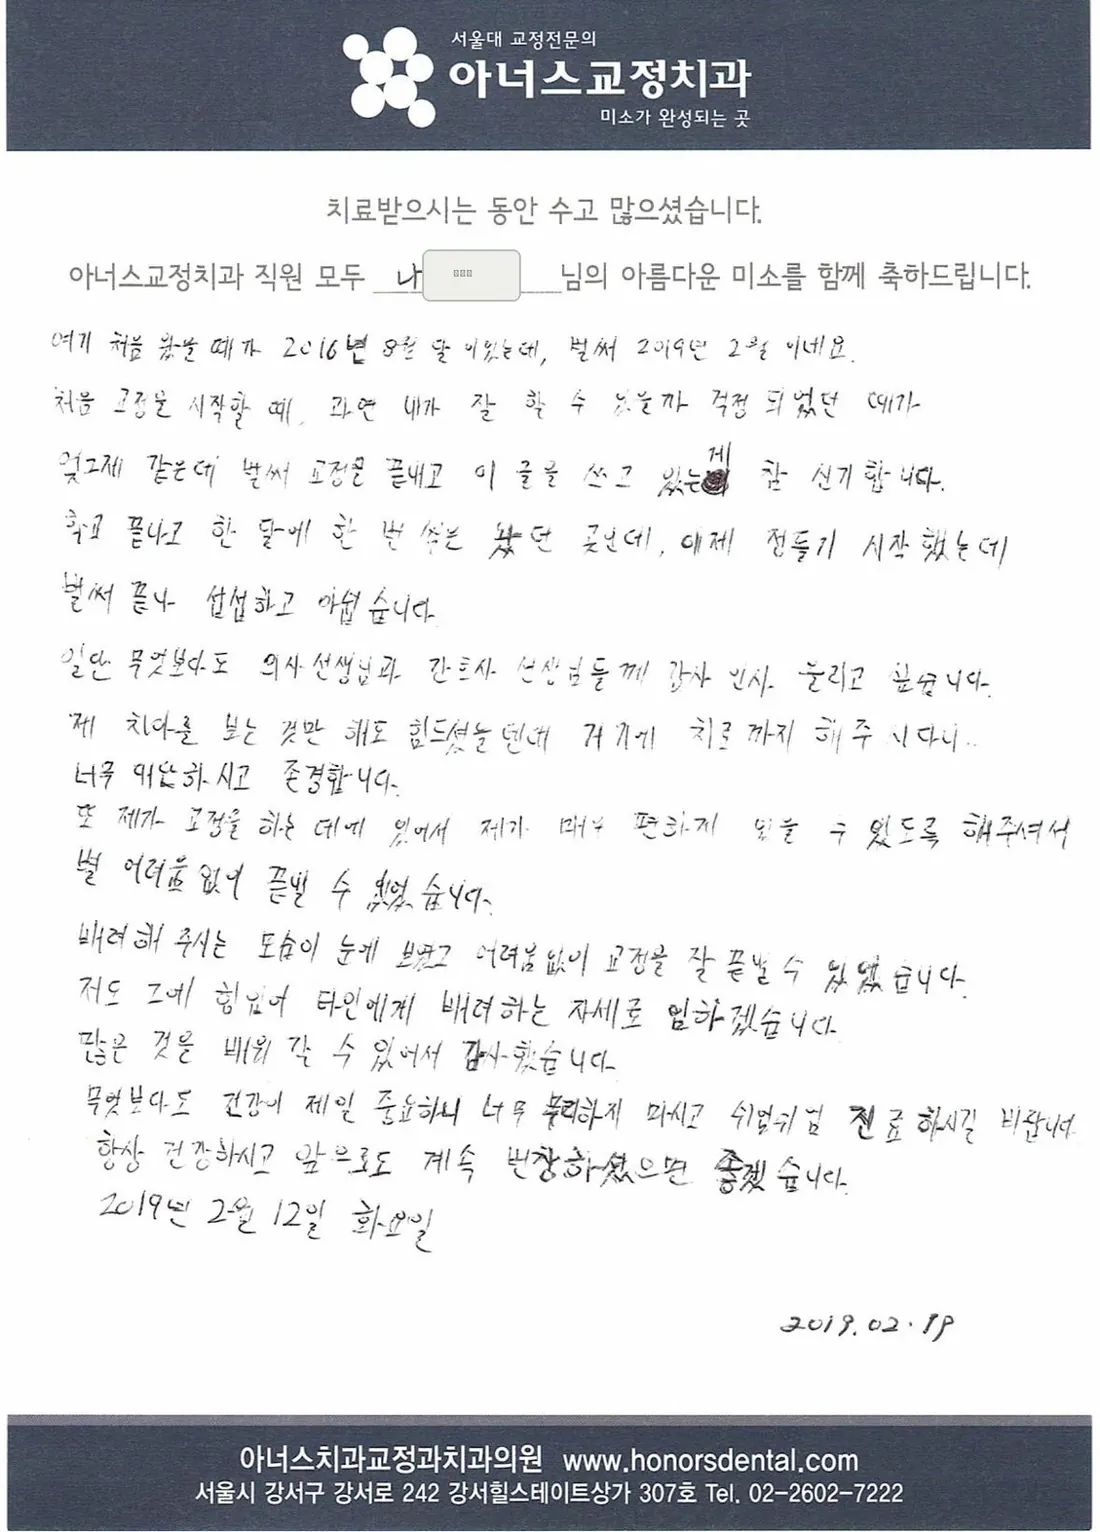 서울대 교정전문의
아너스교정치과
미소가 완성되는 곳
치료받으시는 동안 수고 많으셨습니다.
아너스교정치과 직원 모두 나 님의 아름다운 미소를 함께 축하드립니다.
여기 처음 왔을 때가 2016년 8월 달 이었는데, 벌써 2019년 2월 이네요.
처음 교정을 시작할 때, 과연 내가 잘 할 수 있을까 걱정 되었던 때가
엊그제 같은데 벌써 교정을 끝내고 이 글을 쓰고 있는게 참 신기합니다.
학교 끝나고 한 달에 한 번 씩은 왔던 곳인데, 이제 정들기 시작했는데
벌써 끝나 섭섭하고 아쉽습니다.
일단 무엇보다도 의사선생님과 간호사 선생님들께 감사 인사 올리고 싶습니다.
제 치아를 보는 것만 해도 힘드셨을텐데 거기에 치료까지 해주시다니..
너무 대단하시고 존경합니다.
또 제가 교정을 하는 데에 있어서 제가 매우 편하게 있을 수 있도록 해주셔서
별 어려움없이 끝낼 수 있었습니다.
배려해 주시는 모습이 눈에 보였고 어려움없이 교정을 잘 끝낼 수 있었습니다.
저도 그에 힘입어 타인에게 배려하는 자세로 임하겠습니다.
많은 것을 배워 갈 수 있어서 감사했습니다.
무엇보다도 건강이 제일 중요하니 너무 무리하지 마시고 쉬엄쉬엄 진료하시길 바랍니다.
항상 건강하시고 앞으로도 계속 번창하셨으면 좋겠습니다.
2019년 2월 12일 화요일
2019.02.19
아너스치과교정과치과의원 www.honorsdental.com
서울시 강서구 강서로 242 강서힐스테이트상가 307호 Tel. 02-2602-7222